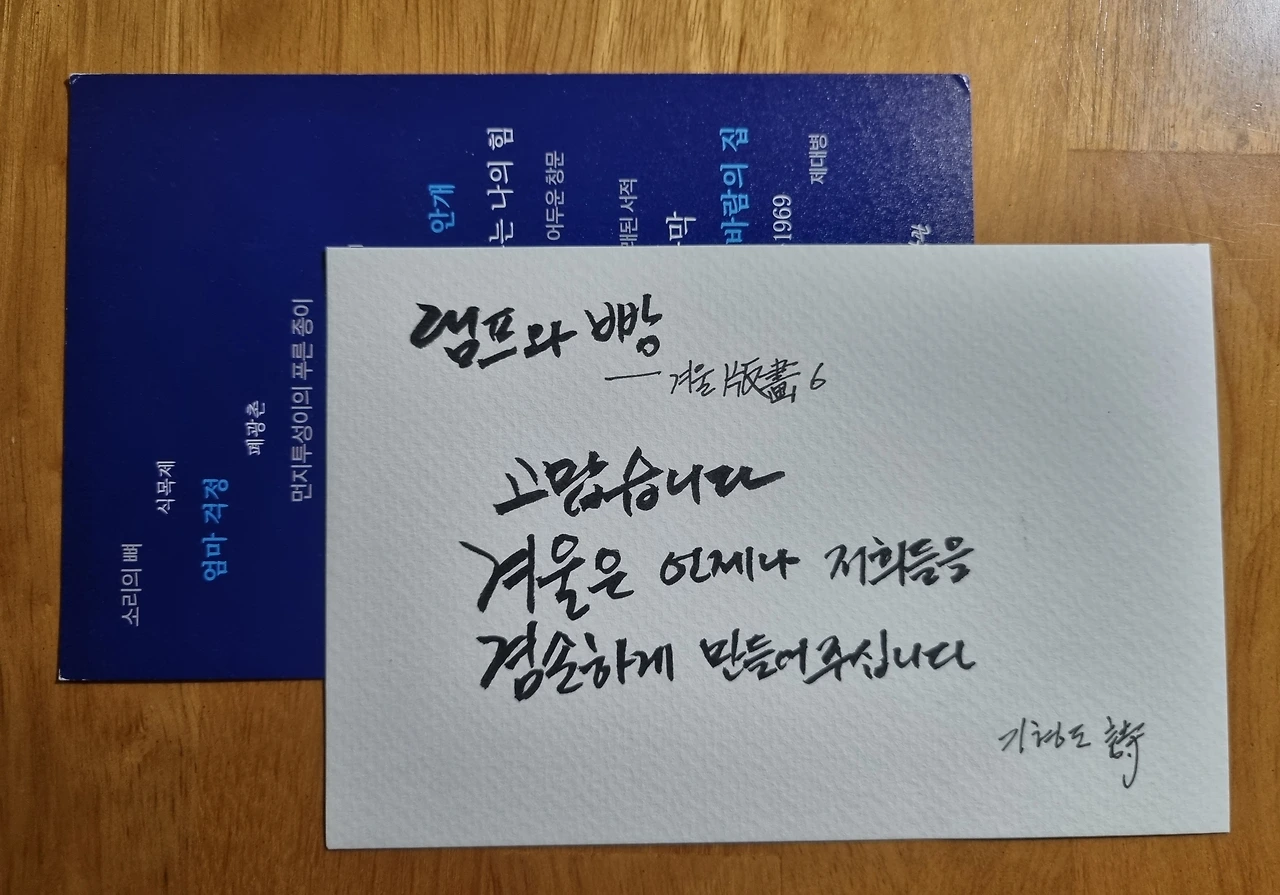 램프와 빵
— 겨울 版畫 6
고맙습니다
겨울은 언제나 저희들을
겸손하게 만들어주십니다
기형도 詩
소리의 뼈
식목제
엄마 걱정
폐광촌
먼지투성이의 푸른 종이
안개
는 나의 힘
어두운 창문
래된 서적
막
바람의 집
1969
제대병
관